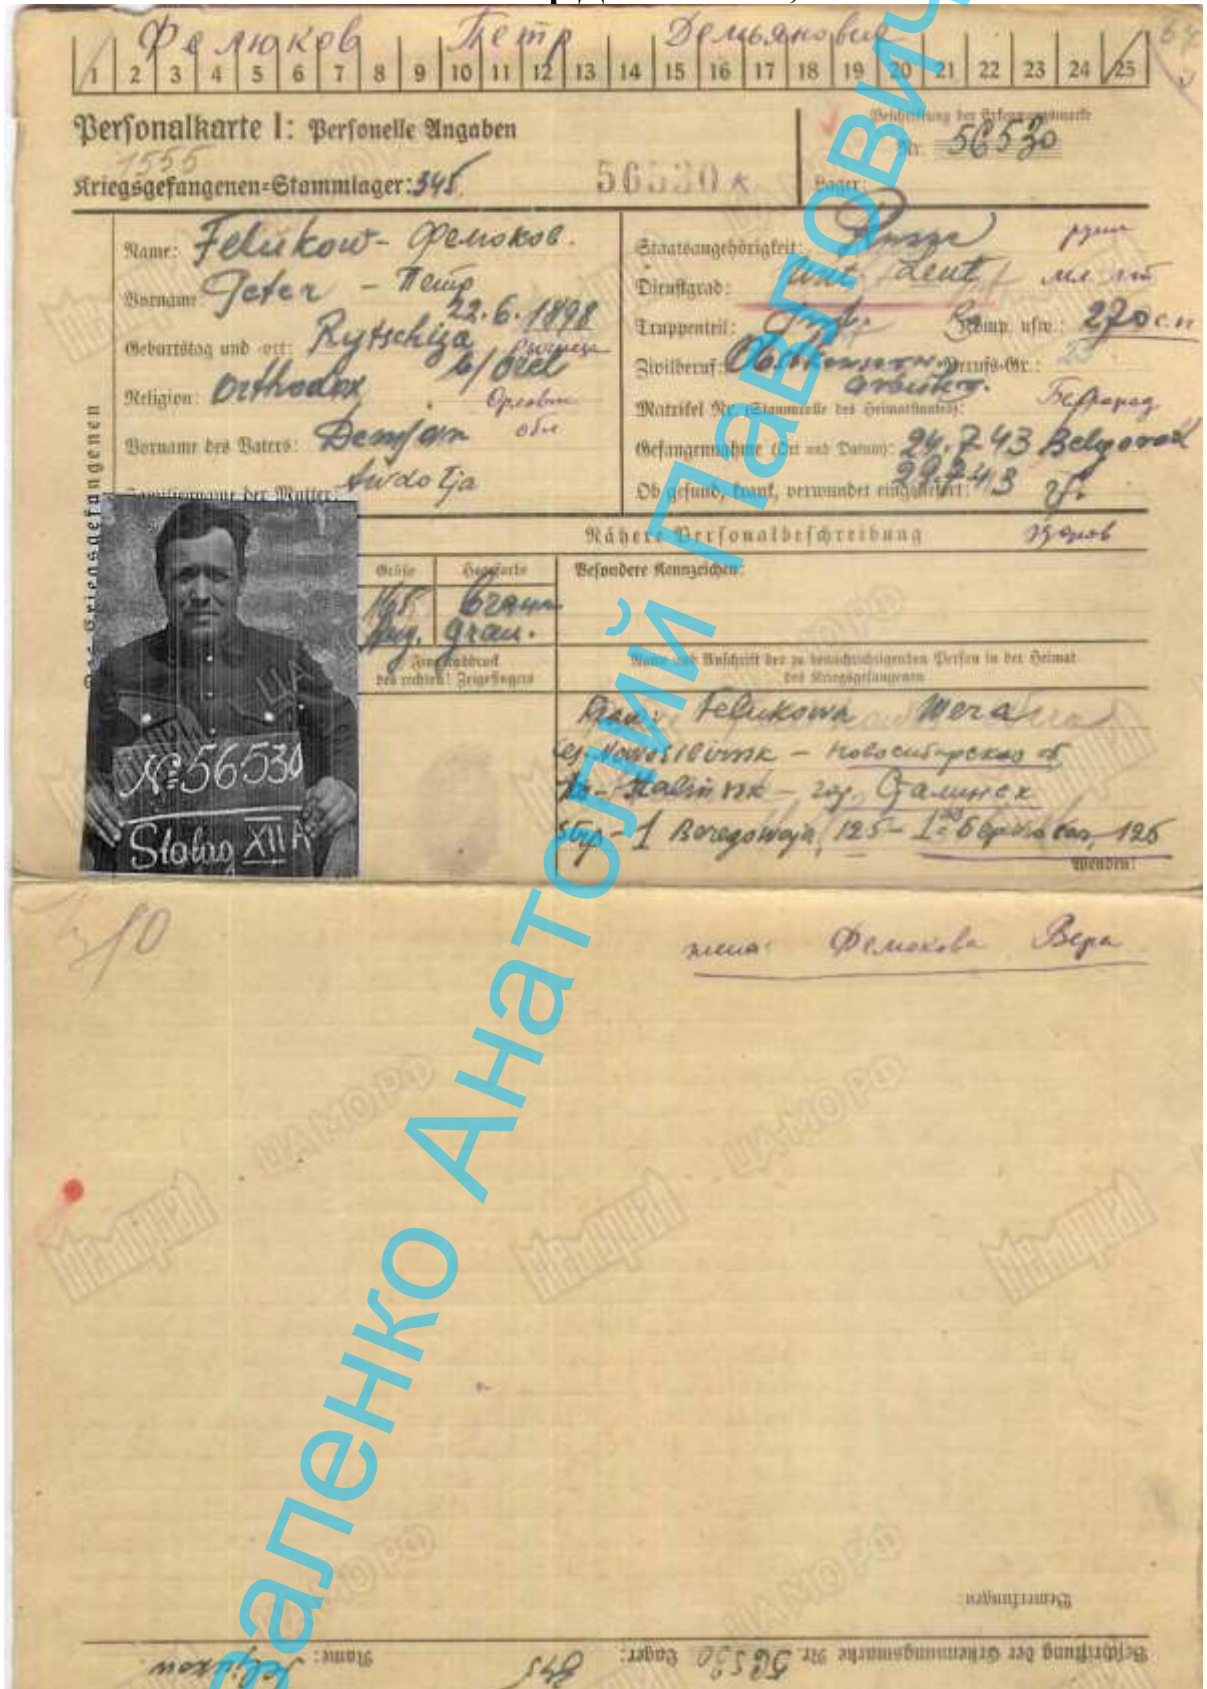 Фелюков Петр Демьянович
1 2 3 4 5 6 7 8 9 10 11 12 13 14 15 16 17 18 19 20 21 22 23 24 25
Personalkarte I: Personelle Angaben
Beschriftung der Erkennungsmarke
Nr. 56530
1555
Kriegsgefangenen-Stammlager: 345
56530 K
Lager:
Name: Felukow - Фелюков.
Vorname: Peter - Петр
Geburtstag und -ort: 22.6.1898
Rytschiza
b/Orel
Religion: Orthodox
Орловск обл
Vorname des Vaters: Demjan
Familienname der Mutter: Awdotja
Staatsangehörigkeit: Russe
Dienstgrad: Unt. Leut. мл лт
Truppenteil: Komp. usw.: 270 сп
Zivilberuf: Berufs-Gr.:
Matrikel Nr. (Stammrolle des Heimatstaates): Белгород
Gefangennahme (Ort und Datum): 24.7.43 Belgorod
Ob gesund, krank, verwundet eingeliefert:
здоров
Nähere Personalbeschreibung
Des Kriegsgefangenen
Größe Haarfarbe Besondere Kennzeichen:
braun
Aug. grau.
Fingerabdruck
des rechten! Zeigefingers
Name und Anschrift der zu benachrichtigenden Person in der Heimat
des Kriegsgefangenen
Felukowa Wera
Nowosibirsk - Новосибирская об
Stalinsk - гор. Сталинск
Str - 1 Beregowaja, 125 - 1ая Береговая, 125
Wenden!
№ 56530
Stalag XII A
жена: Фелюкова Вера
Мемориал
ЦАМО РФ
Bemerkungen:
Beschriftung der Erkennungsmarke Nr. 56530 Lager: 345 Name: Feljukow
заленко Анатолий Павлович